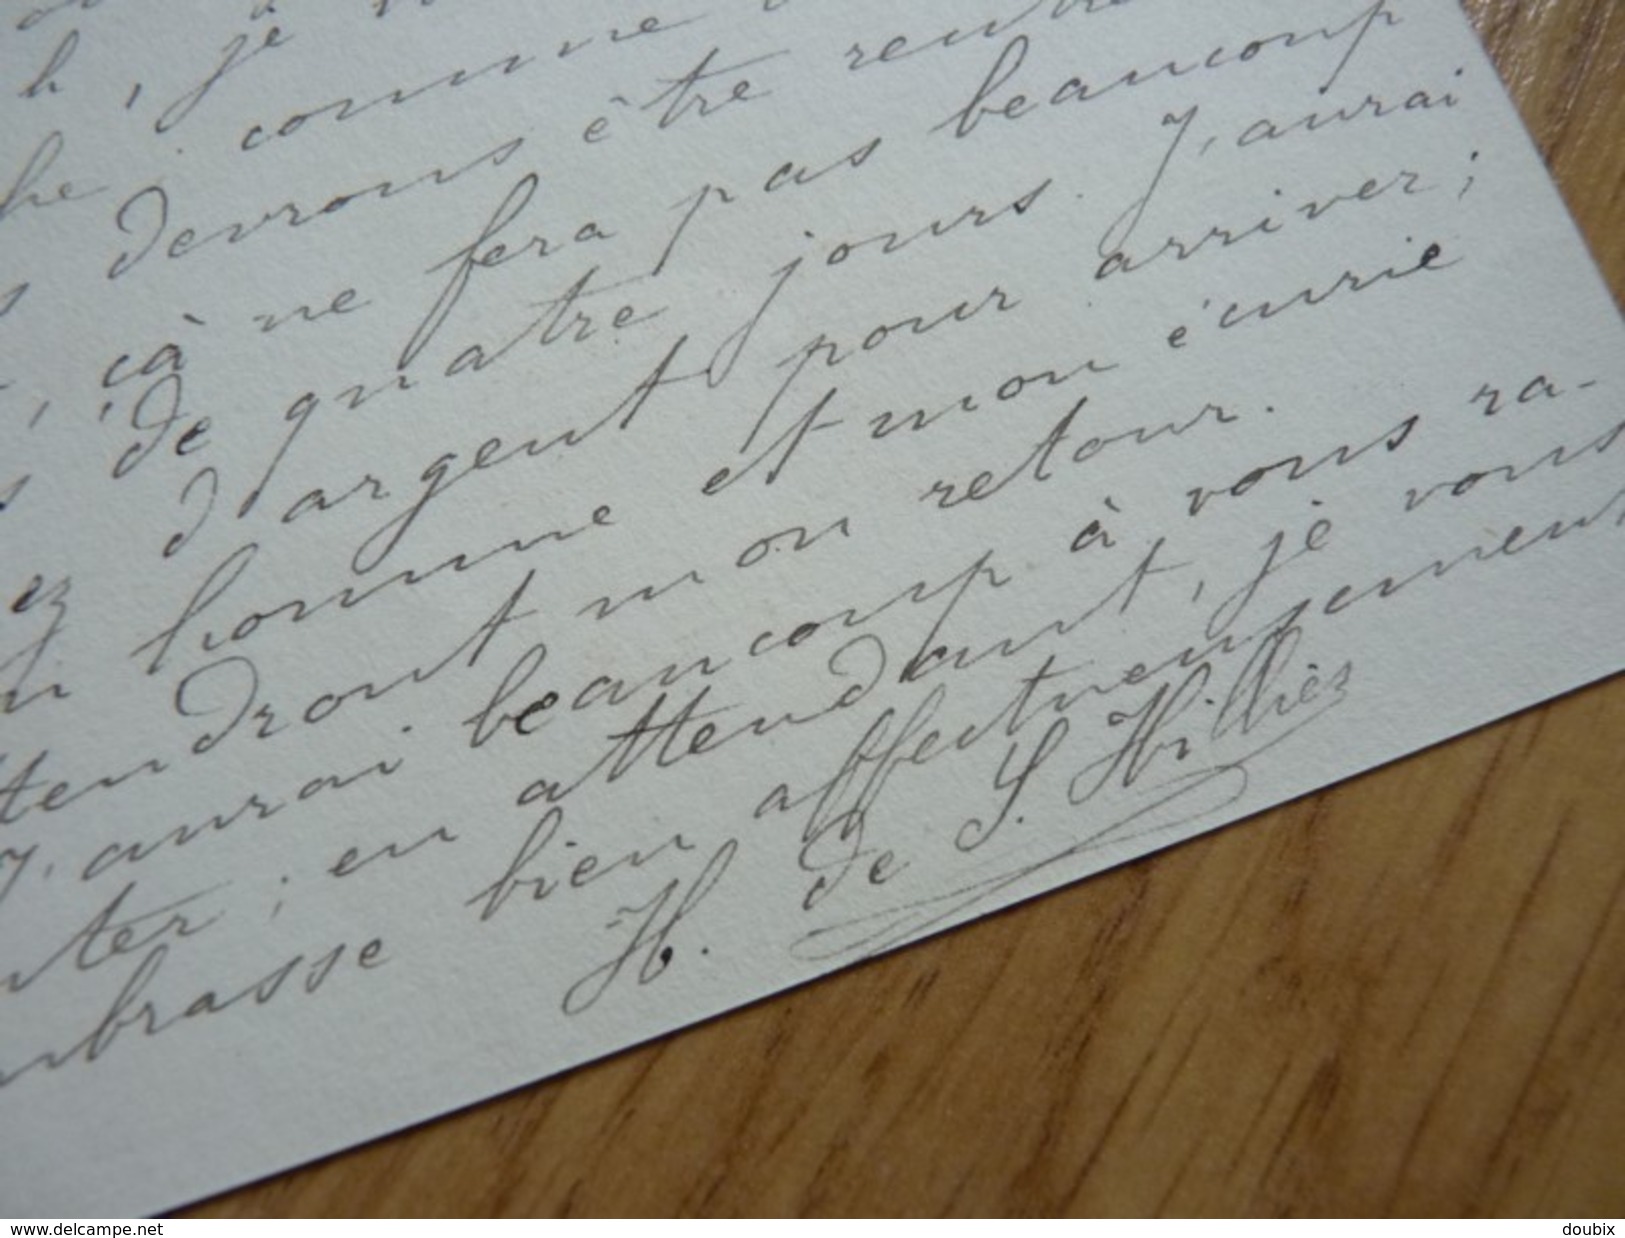 h, je
he. comme
devrons être
, çà ne fera pas beaucoup
s de quatre jours. J'aurai
ez d'argent pour arriver;
homme et mon écurie
tendront mon retour.
J'aurai beaucoup à vous ra-
nter; en attendant, je vous
mbrasse bien affectueusement
H. de S. Hilliéz
www.delcampe.net
doubix